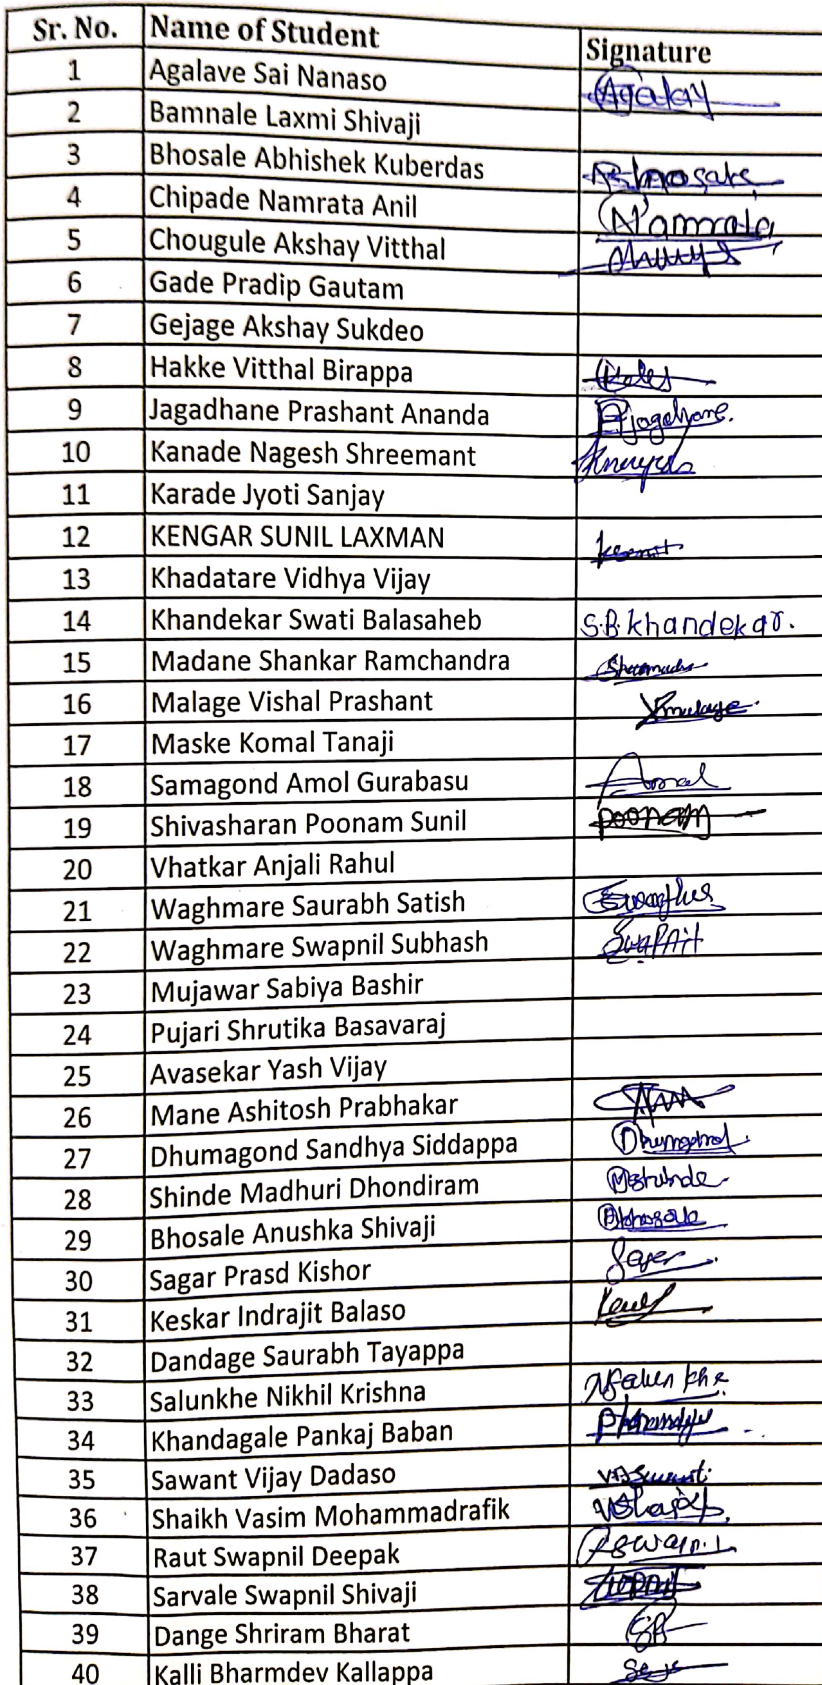 Sr. No. Name of Student Signature
1 Agalave Sai Nanaso Agalav
2 Bamnale Laxmi Shivaji
3 Bhosale Abhishek Kuberdas
4 Chipade Namrata Anil Namrata
5 Chougule Akshay Vitthal
6 Gade Pradip Gautam
7 Gejage Akshay Sukdeo
8 Hakke Vitthal Birappa
9 Jagadhane Prashant Ananda
10 Kanade Nagesh Shreemant
11 Karade Jyoti Sanjay
12 KENGAR SUNIL LAXMAN
13 Khadatare Vidhya Vijay
14 Khandekar Swati Balasaheb S.B.khandekar.
15 Madane Shankar Ramchandra
16 Malage Vishal Prashant
17 Maske Komal Tanaji
18 Samagond Amol Gurabasu Amol
19 Shivasharan Poonam Sunil poonam
20 Vhatkar Anjali Rahul
21 Waghmare Saurabh Satish
22 Waghmare Swapnil Subhash
23 Mujawar Sabiya Bashir
24 Pujari Shrutika Basavaraj
25 Avasekar Yash Vijay
26 Mane Ashitosh Prabhakar
27 Dhumagond Sandhya Siddappa
28 Shinde Madhuri Dhondiram MShinde
29 Bhosale Anushka Shivaji ABhosale
30 Sagar Prasd Kishor
31 Keskar Indrajit Balaso
32 Dandage Saurabh Tayappa
33 Salunkhe Nikhil Krishna
34 Khandagale Pankaj Baban
35 Sawant Vijay Dadaso
36 Shaikh Vasim Mohammadrafik
37 Raut Swapnil Deepak
38 Sarvale Swapnil Shivaji
39 Dange Shriram Bharat
40 Kalli Bharmdev Kallappa